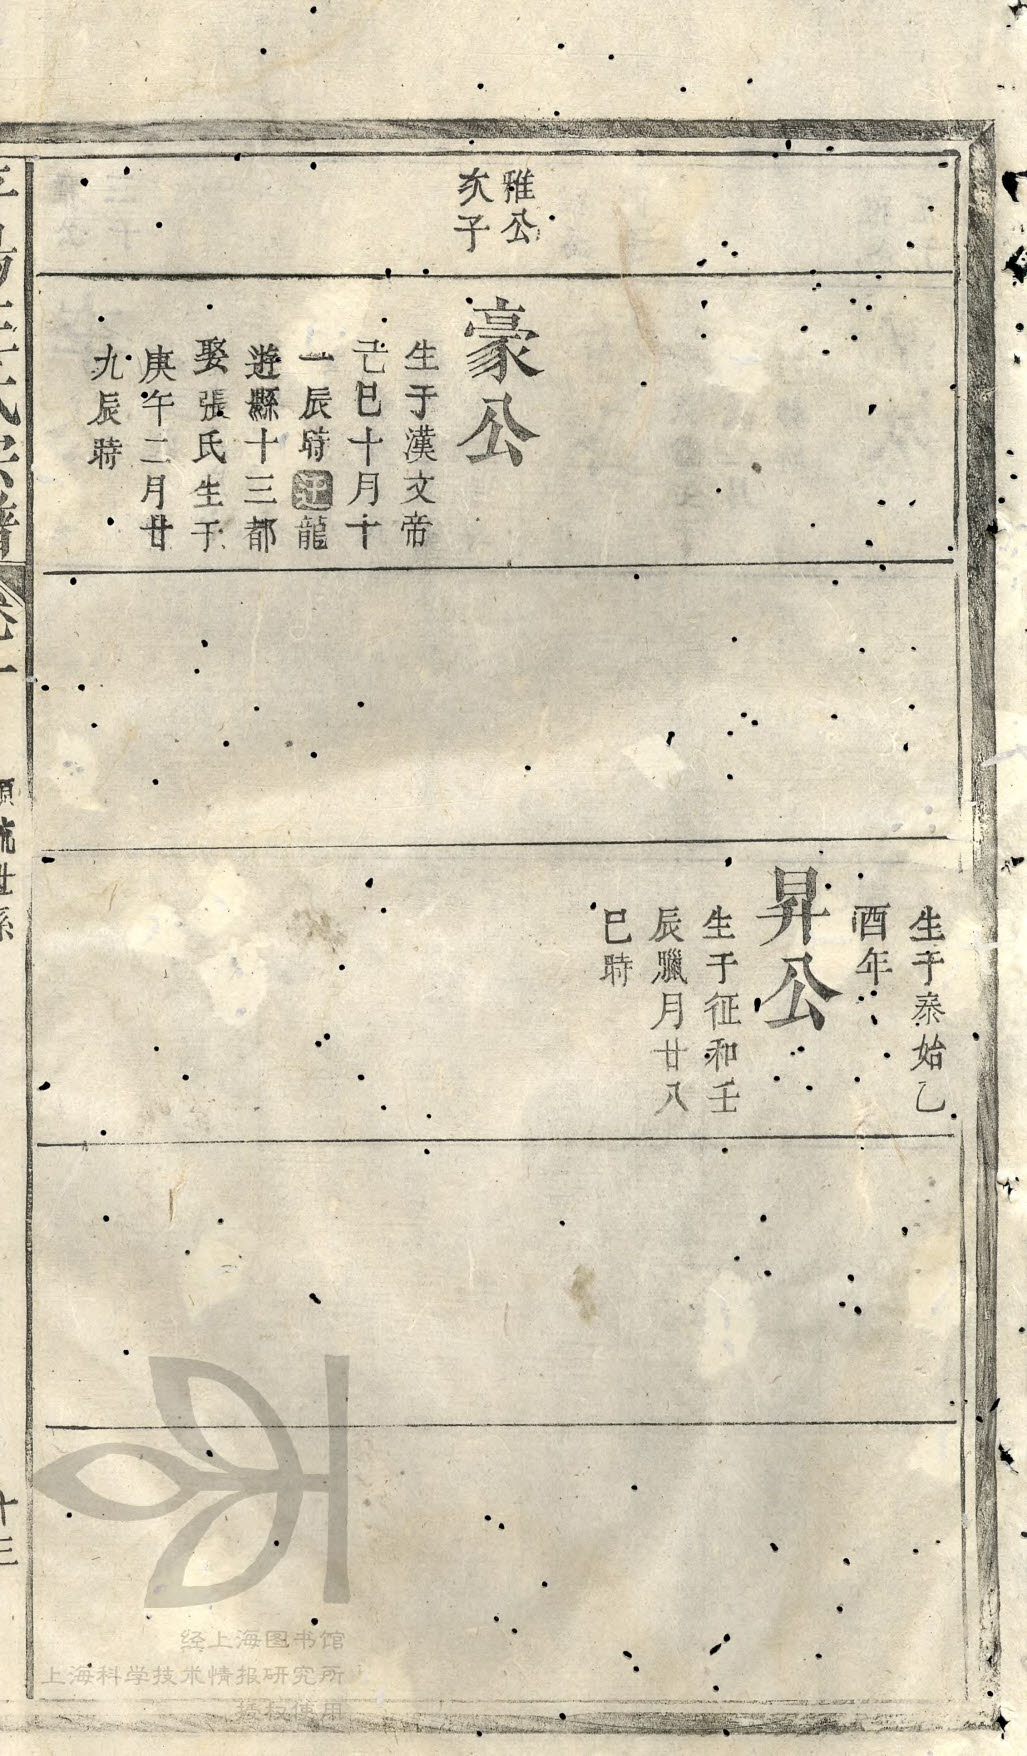 雅公
次子
豪公
生于漢文帝
己巳十月十
一辰時遷龍
遊縣十三都
娶張氏生于
庚午二月廿
九辰時
生于泰始乙
酉年
昇公
生于征和壬
辰臘月廿八
巳時
氏宗譜
卷一
世系
十三
经上海图书馆
上海科学技术情报研究所
授权使用